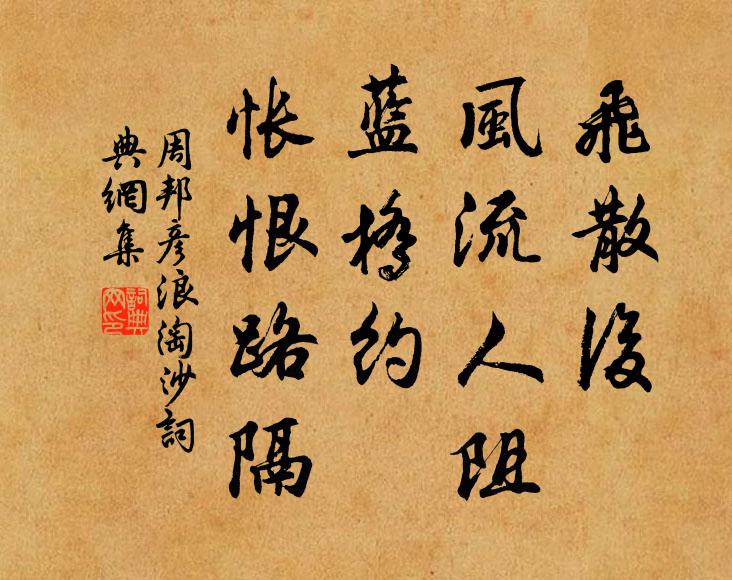 飛散後
風流人阻
藍橋約
悵恨路隔
周邦彦浪淘沙詞
典網集
詞典网印